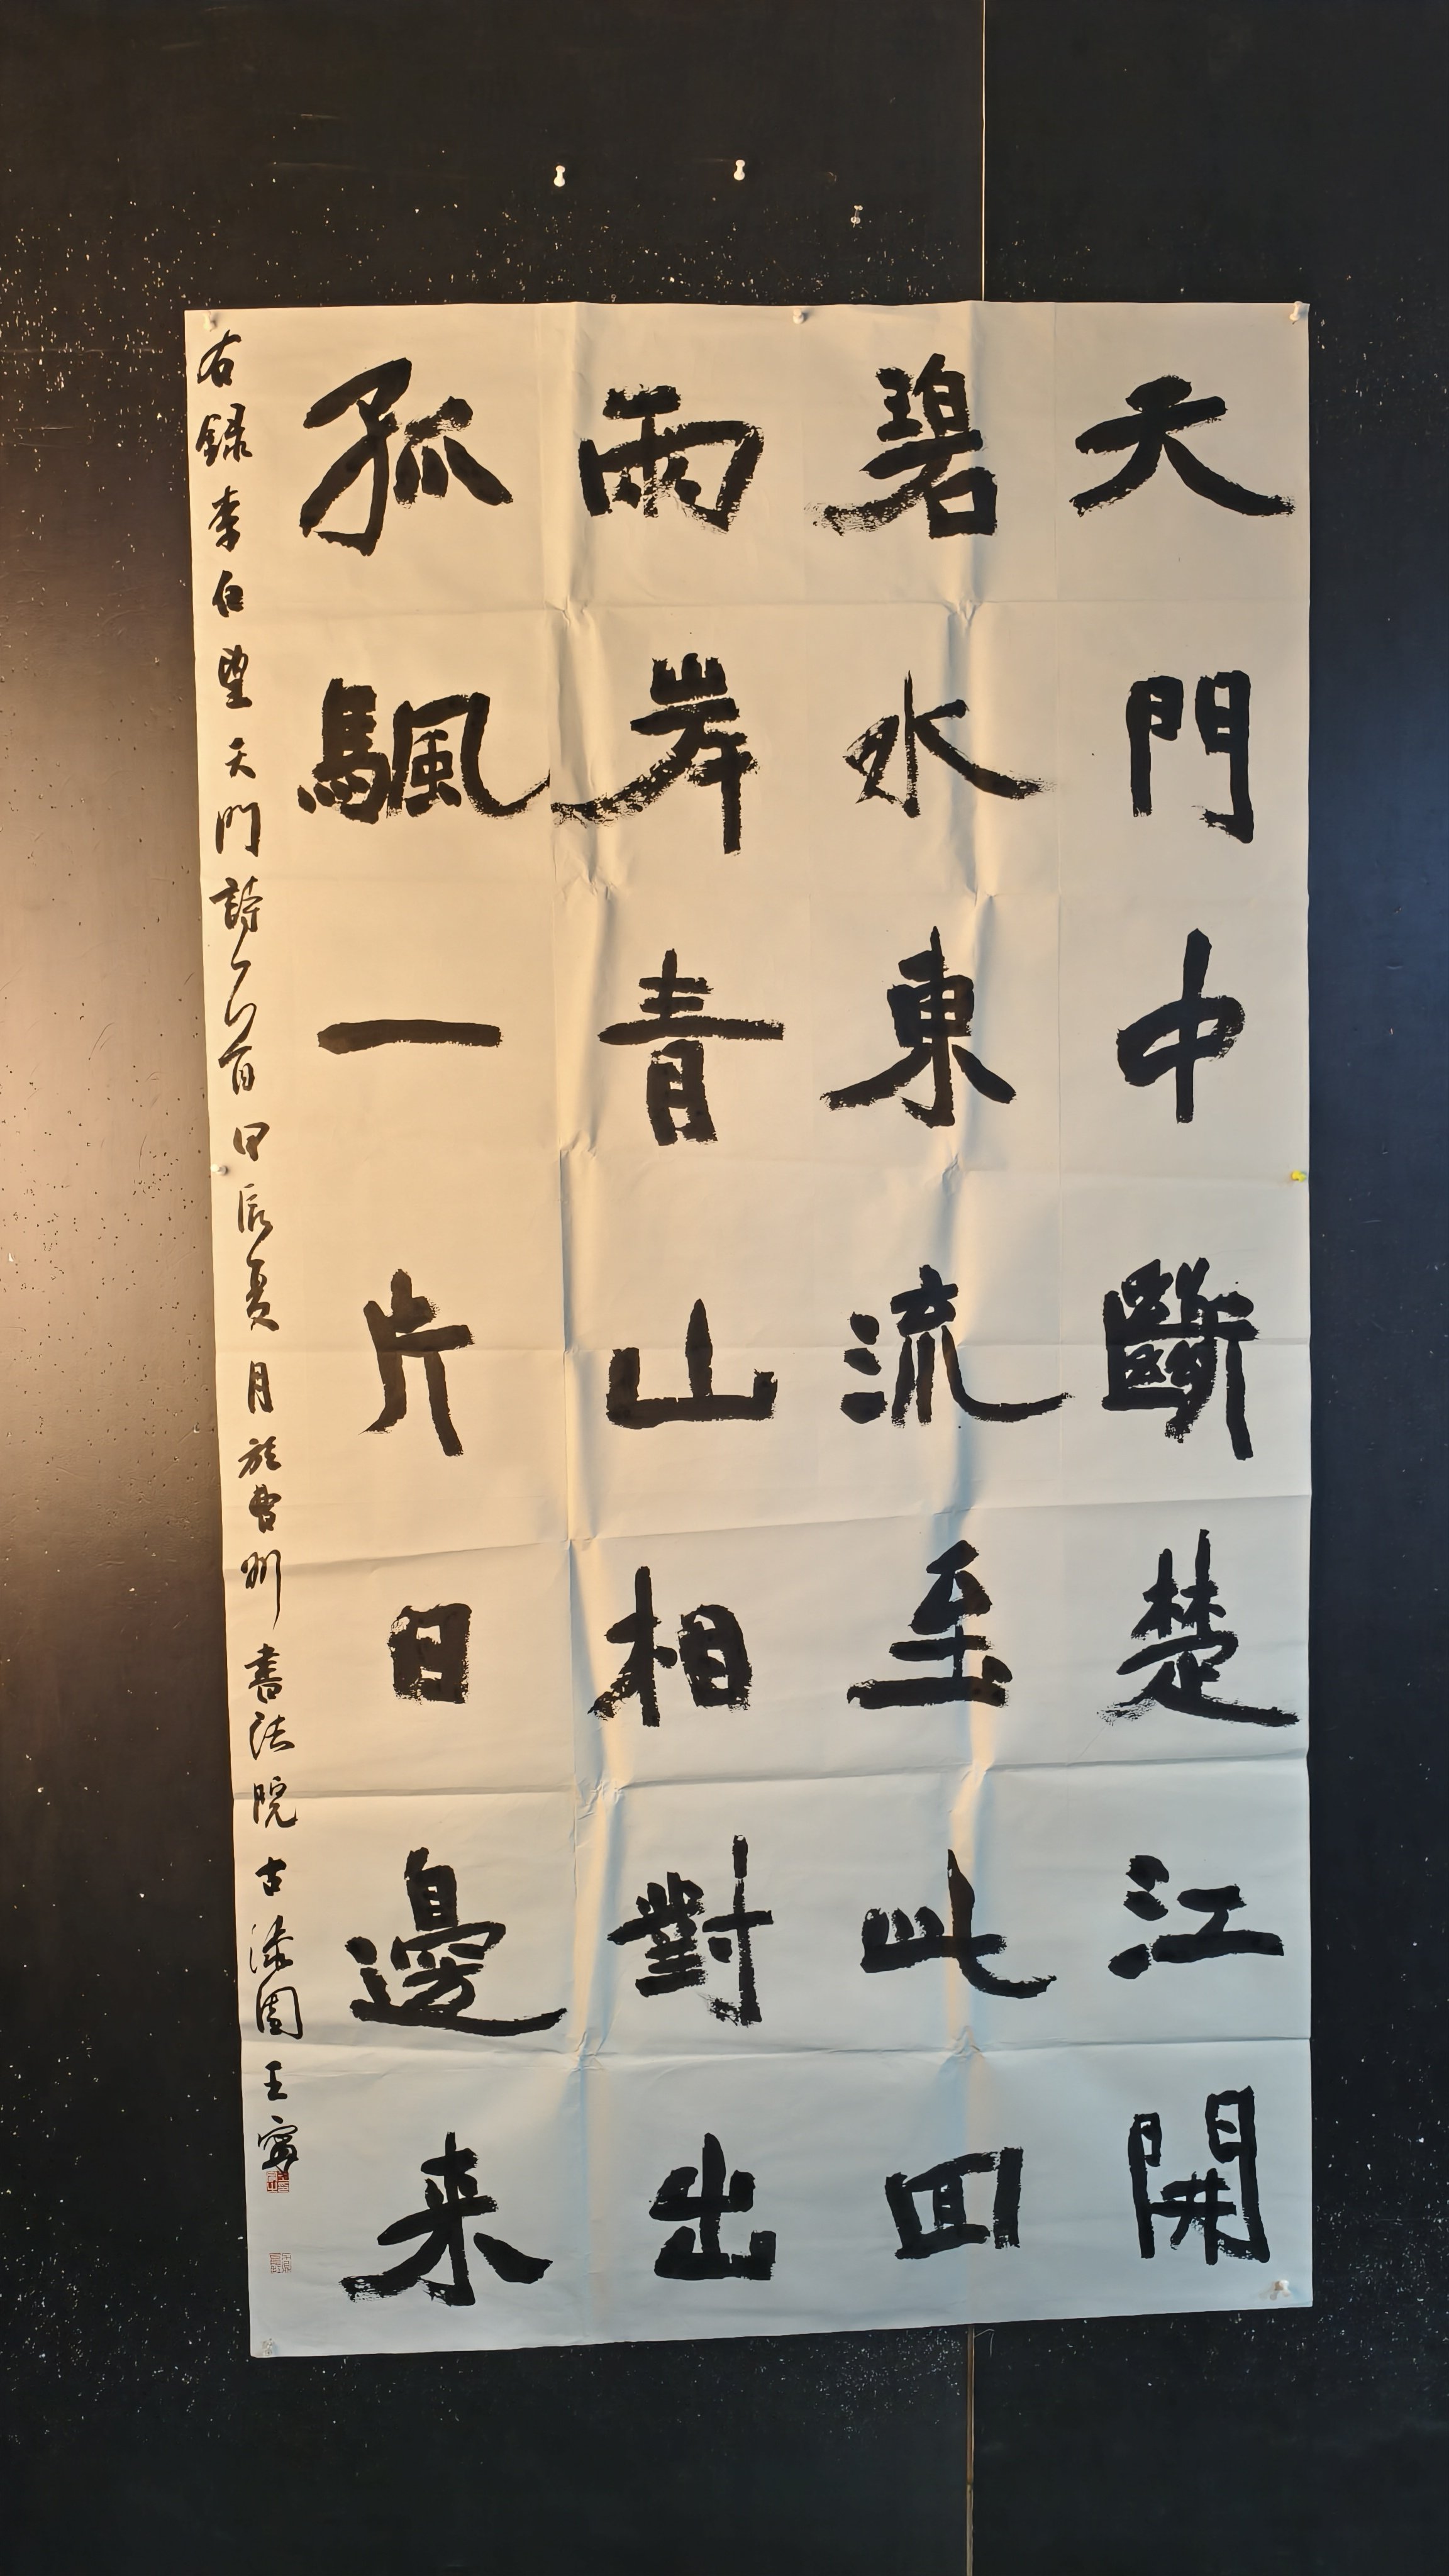 天門中斷楚江開
碧水東流至此回
兩岸青山相對出
孤颿一片日邊来
右録李白望天門詩一首甲辰夏月於曹州書法院古漆園王寧